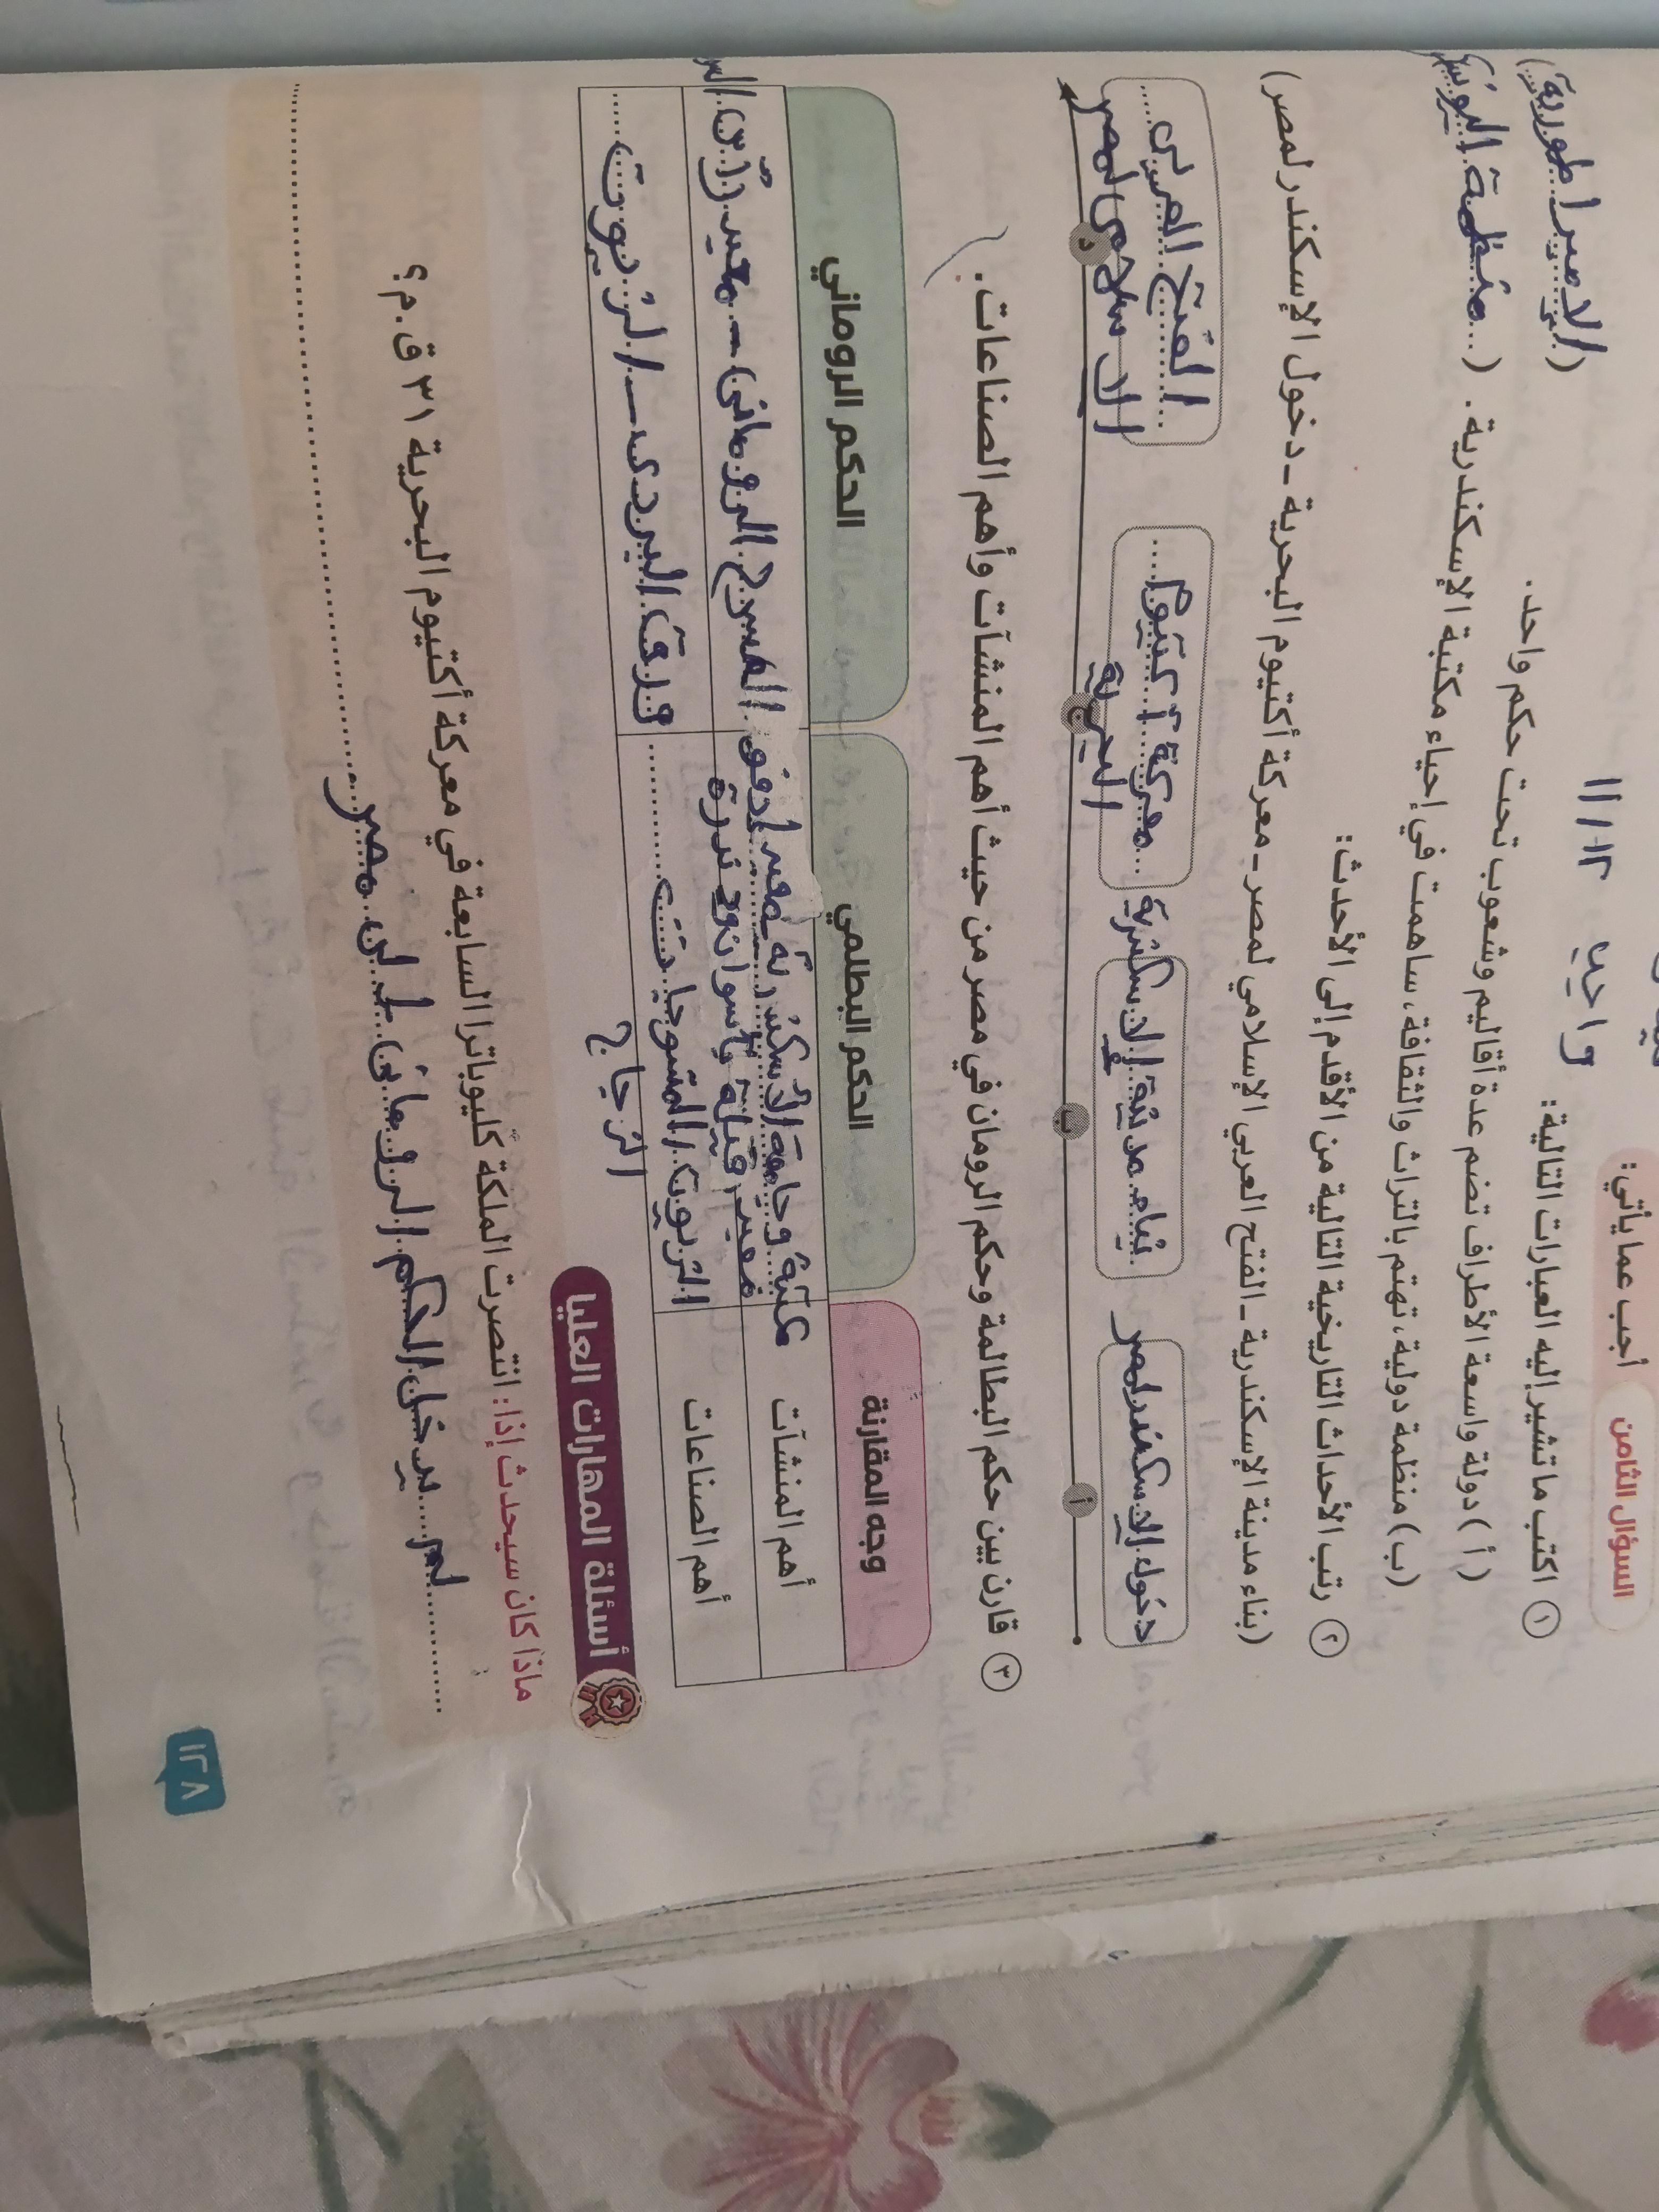 واجب ١١/١٢
السؤال الثامن أجب عما يأتي:
١ اكتب ما تشير إليه العبارات التالية:
(أ) دولة واسعة الأطراف تضم عدة أقاليم وشعوب تحت حكم واحد. (الامبراطورية)
(ب) منظمة دولية، تهتم بالتراث والثقافة، ساهمت في إحياء مكتبة الإسكندرية. (منظمة اليونسكو
٢ رتب الأحداث التاريخية التالية من الأقدم إلى الأحدث:
(بناء مدينة الإسكندرية – الفتح العربي الإسلامي لمصر – معركة أكتيوم البحرية – دخول الإسكندر لمصر)
دخول الاسكندر لمصر
بناء مدينة الاسكندرية
معركة أكتيوم البحرية
الفتح العربى الاسلامى لمصر
أ ب ج د
٣ قارن بين حكم البطالمة وحكم الرومان في مصر من حيث أهم المنشآت وأهم الصناعات.
وجه المقارنة الحكم البطلمي الحكم الروماني
أهم المنشآت
مكتبة وجامعة الأسكندرية معبد ادفو
معبد فيلة بأسوان ودندرة
المسرح الرومانى – معبد
أهم الصناعات
الزيوت المنسوجات
الزجاج
ورق البردى – الزيوت
أسئلة المهارات العليا
ماذا كان سيحدث إذا: انتصرت الملكة كليوباترا السابعة في معركة أكتيوم البحرية ٣١ ق.م؟
لم يدخل الحكم الرومانى إلى مصر
١٣٨